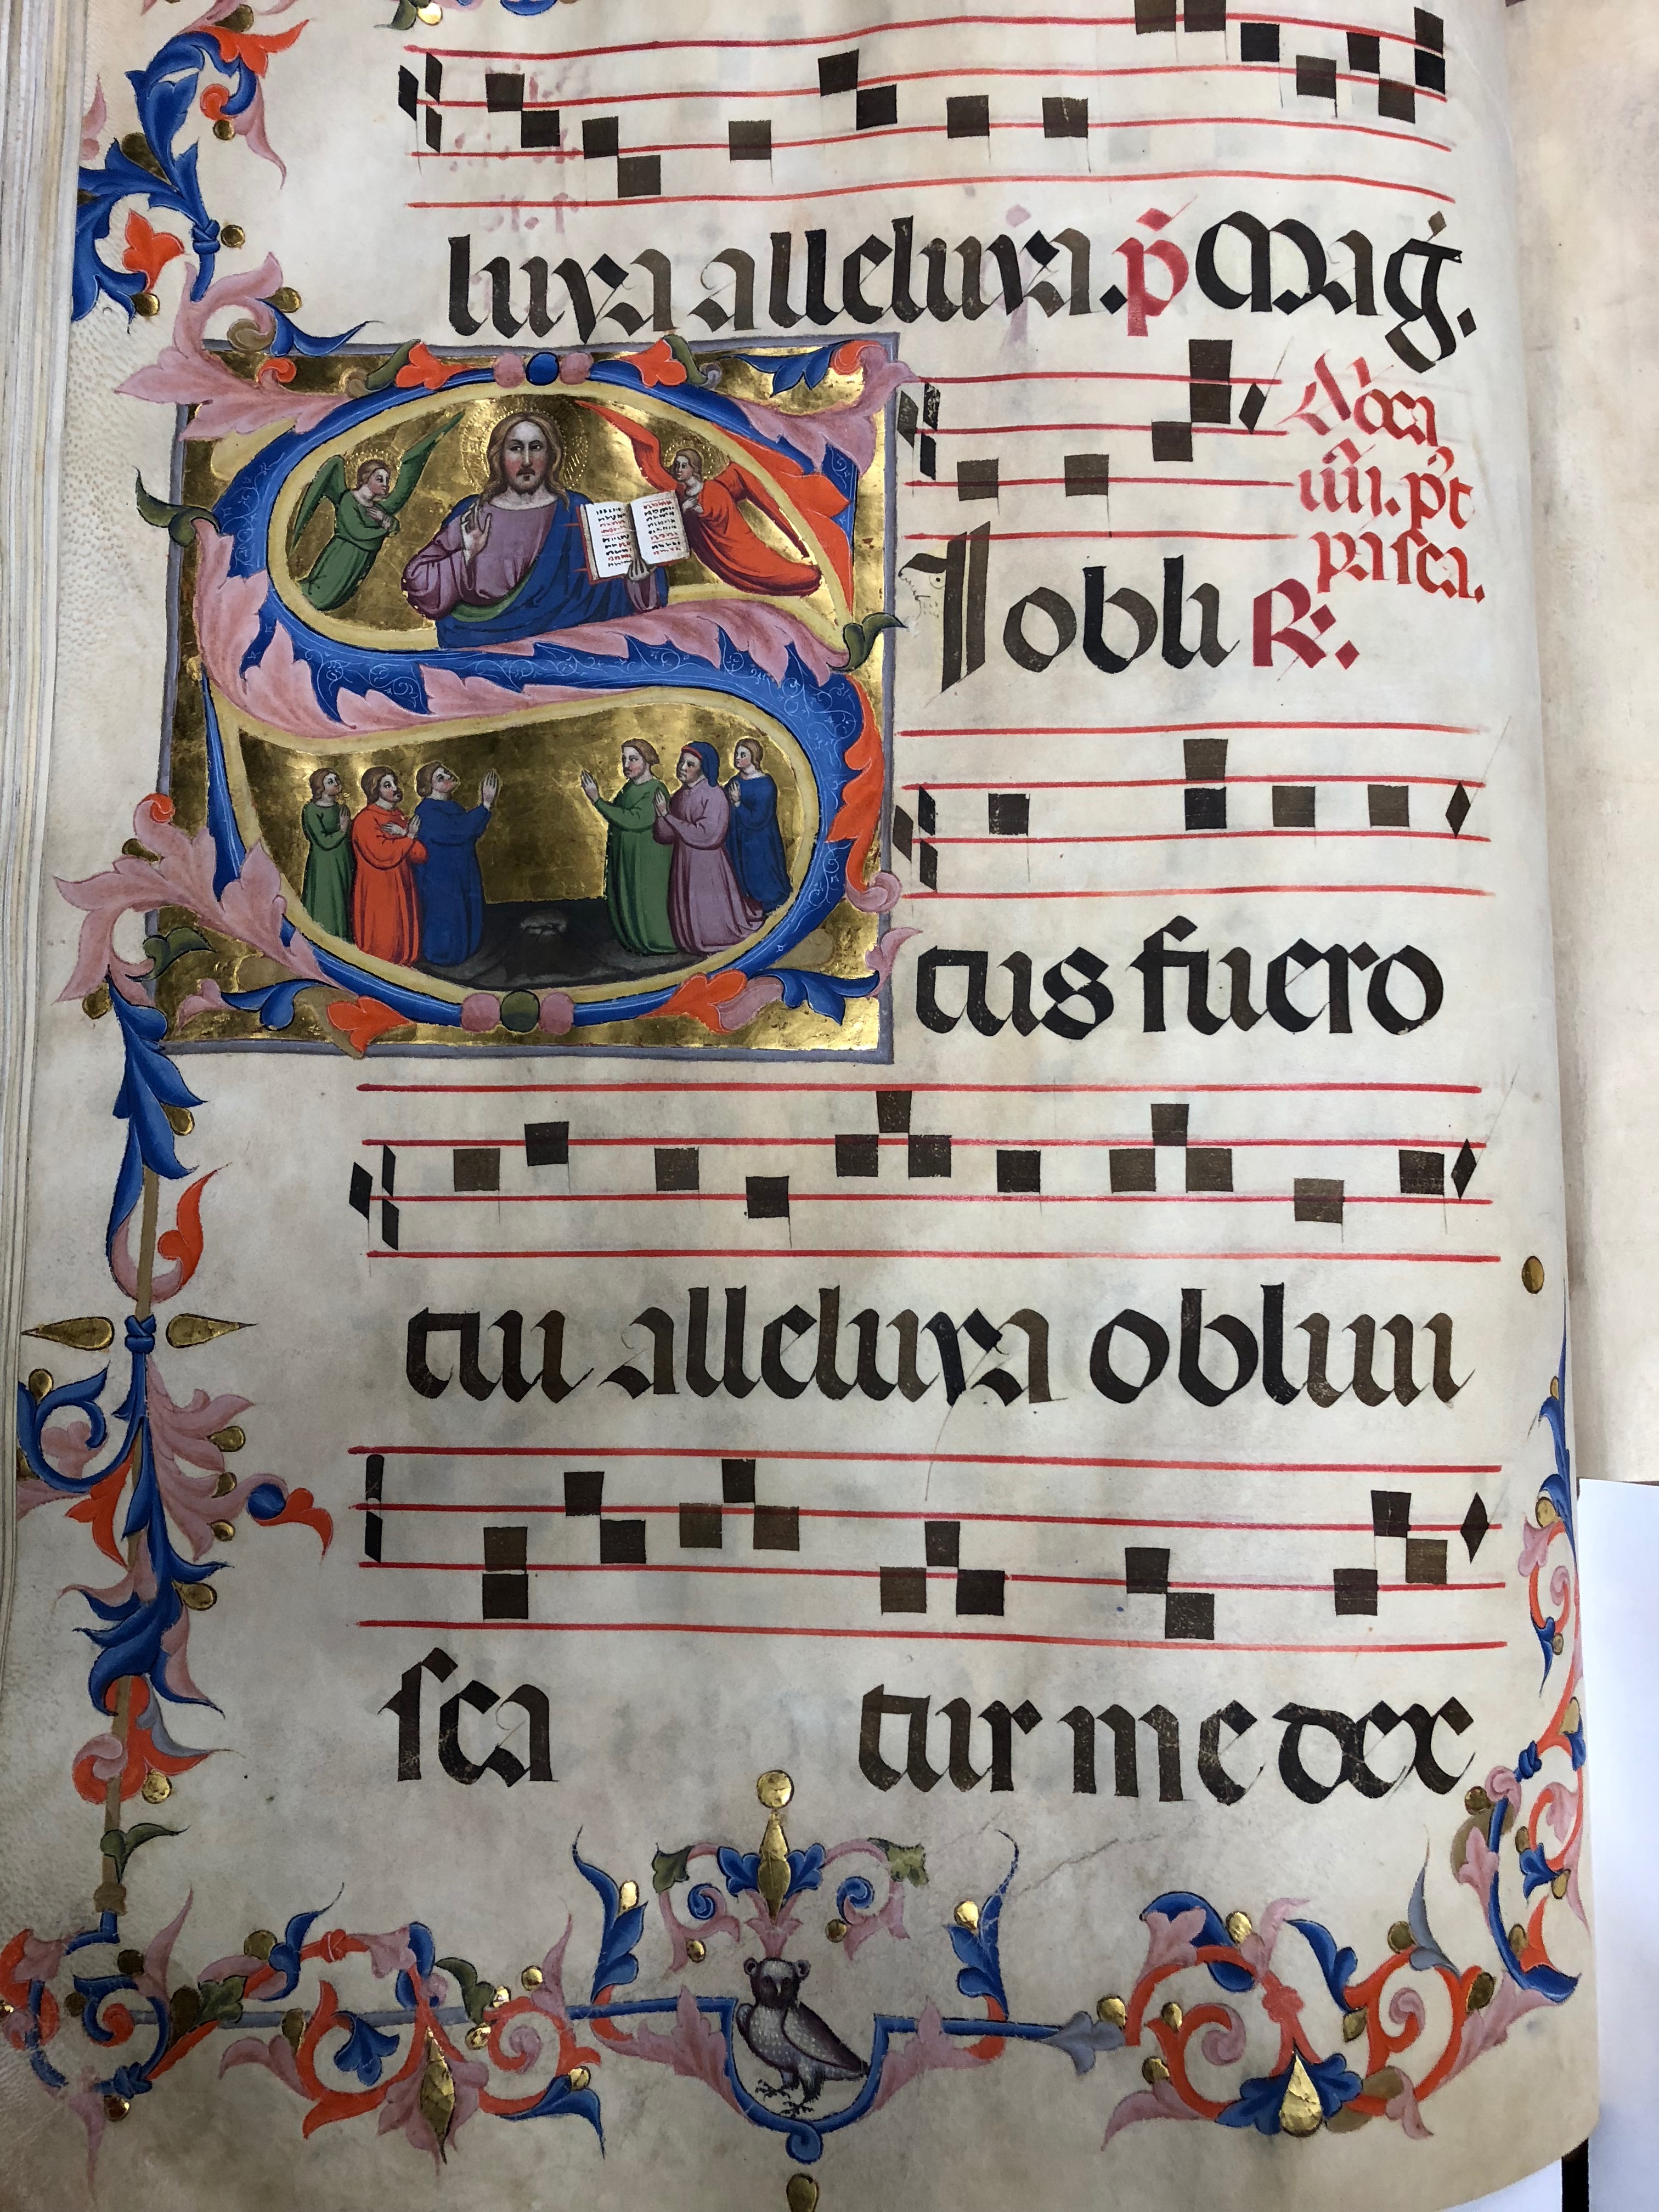 luya alleluya. p̃ Mag̃.
Dñica
iiii. pͬt
pasca.
S I obli R̃.
tus fuero
tui alleluya oblivi
sca tur me dex